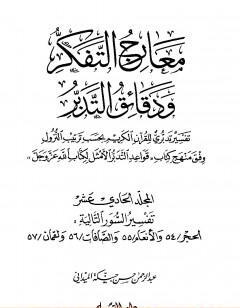 معارج التفكر
ودقائق التدبر
تفسير تدبري للقرآن الكريم بحسب ترتيب النزول
وفق منهج كتاب «قواعد التدبر الأمثل لكتاب الله عز وجل»
المجلد الحادي عشر
تفسير السور التالية:
الحجر/٥٤ والأنعام/٥٥ والصافات/٥٦ ولقمان/٥٧
عبد الرحمن حسن حبنكة الميداني